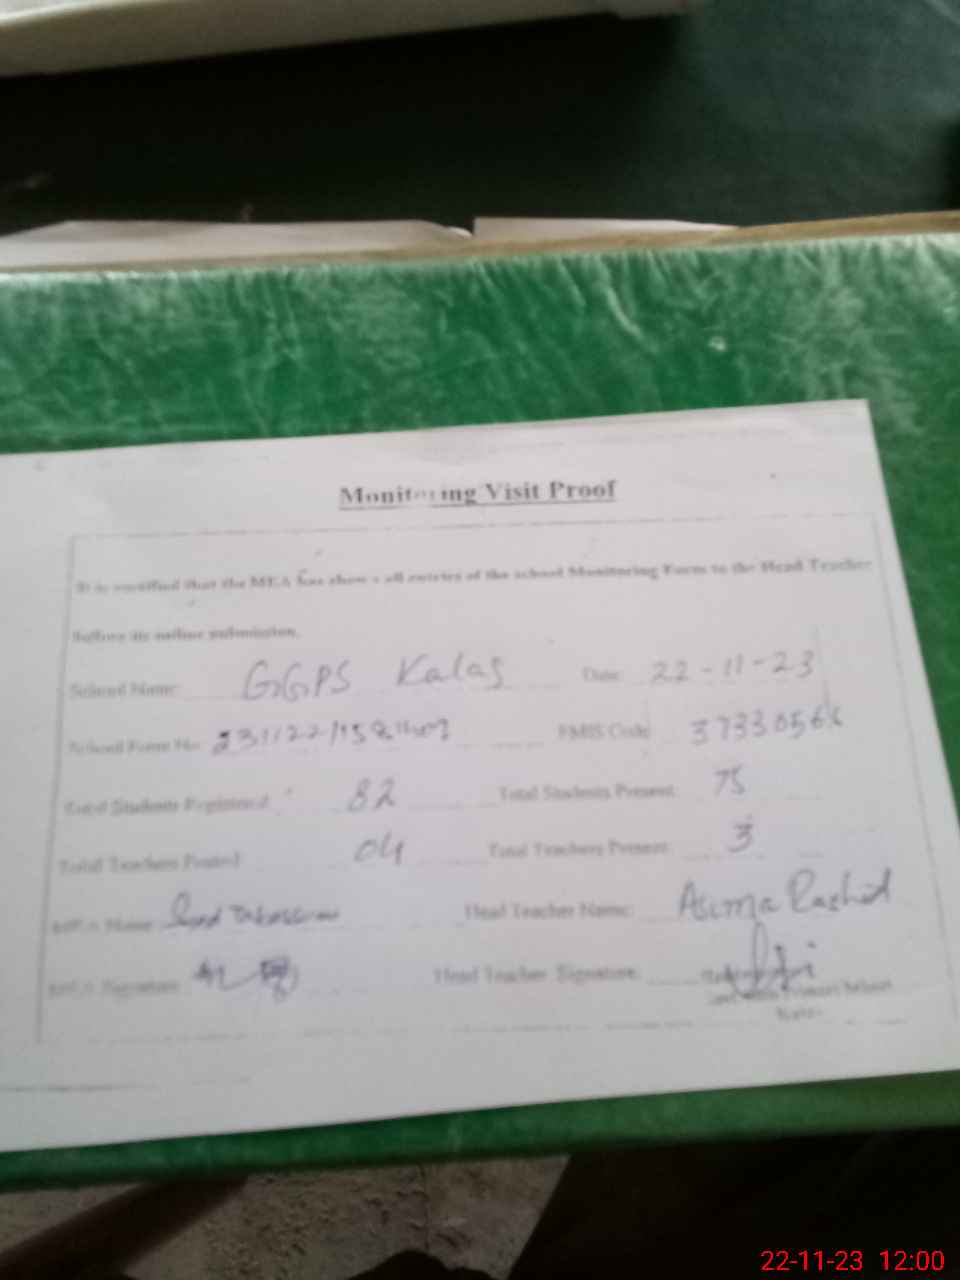 Monitoring Visit Proof
It is certified that the MEA has shown all entries of the school Monitoring Form to the Head Teacher
before its online submission.
School Name: GGPS Kalas Date: 22-11-23
School Form No: EMIS Code
Total Students Registered: 82 Total Students Present: 75
Total Teachers Posted: 04 Total Teachers Present: 3
MEA Name: Head Teacher Name: Asma Rashid
MEA Signature: Head Teacher Signature:
Primary School
22-11-23 12:00